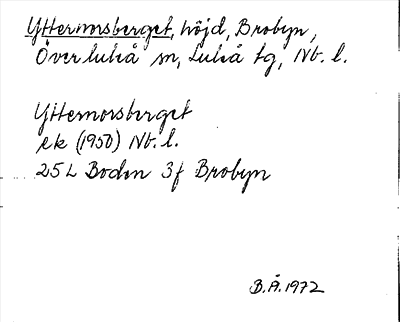 Yttermorsberget, höjd, Brobyn,
Överluleå sn, Luleå tg, Nb. l.
Yttermorsberget
ek (1950) Nb. l.
25 L Boden 3f Brobyn
B.Å. 1972